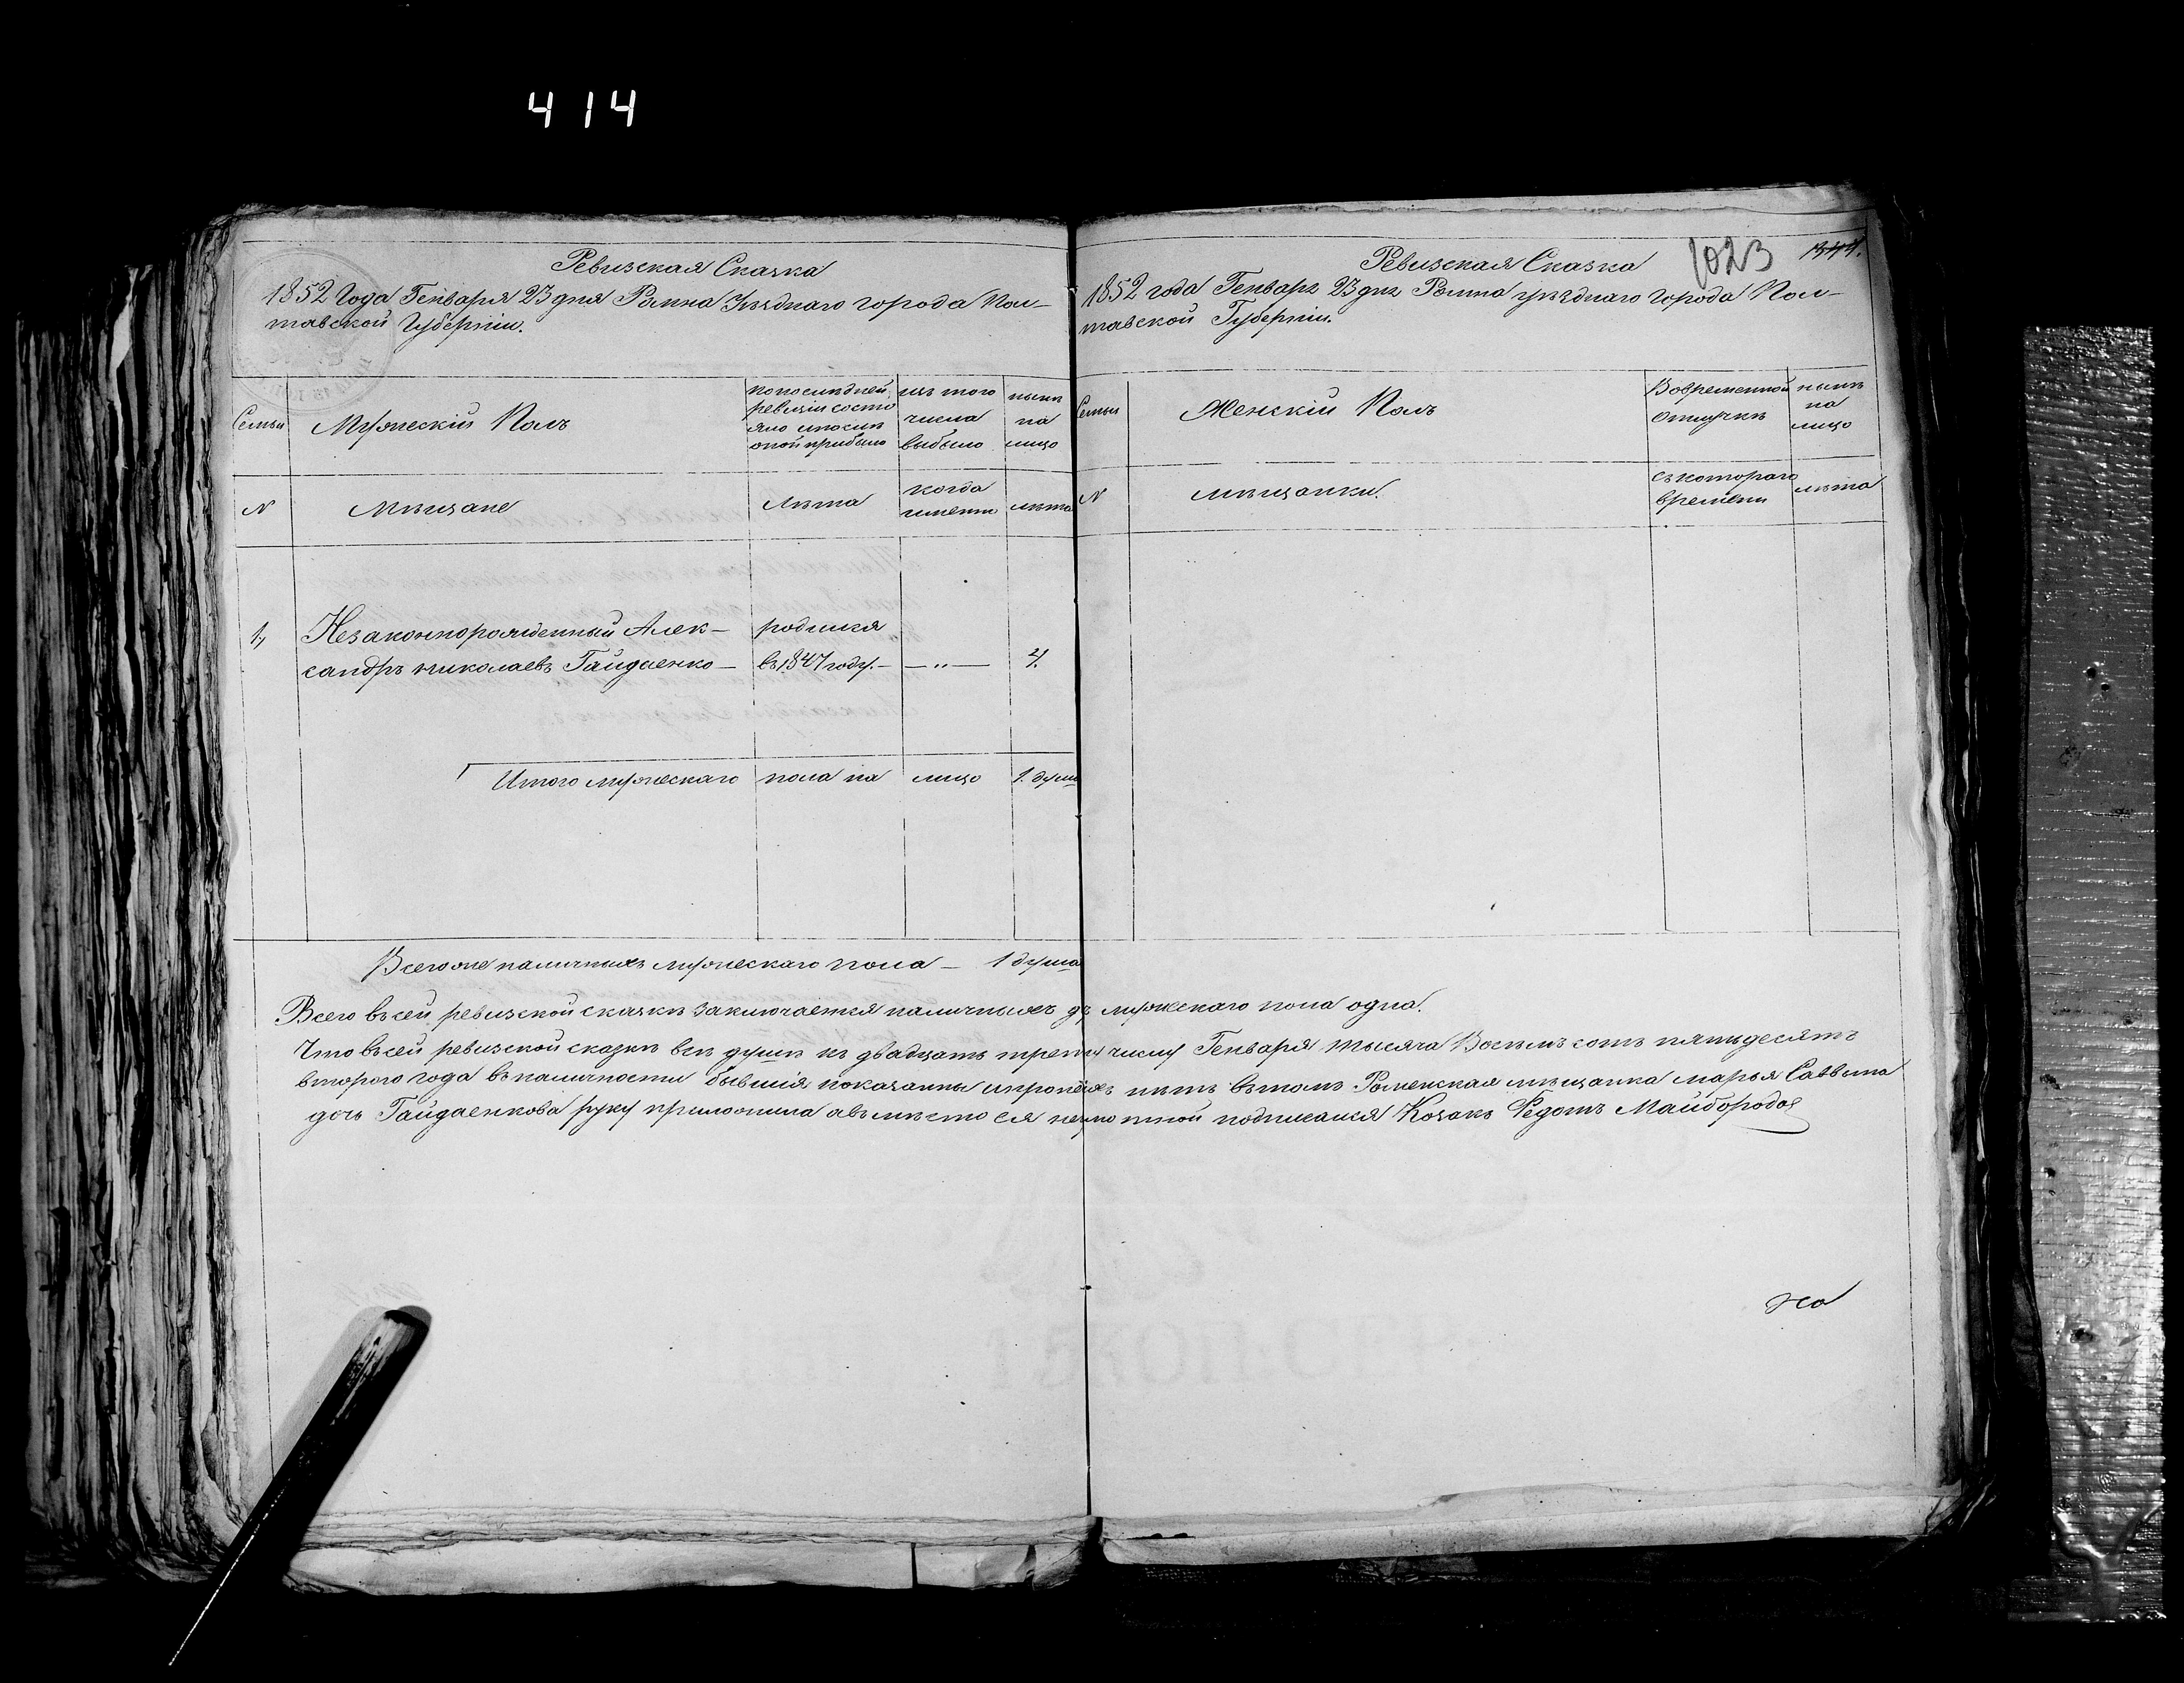 414
Ревизская Сказка
1852 Года Генваря 23 дня Ромна Уѣзднаго города Пол-
тавской Губерніи.
Семьи
Мужескій Полъ
попослѣдней
ревизіи состо
яло ипослѣ
оной прибыло
изъ того
числа
выбыло
нынѣ
на
лицо
N
Мѣщане
Лѣта
когда
имѣнно
лѣта
1,
Незаконнорожденный Алек-
сандръ николаевъ Гайдаенко-
родился
въ 1847 году.-
— „ —
4.
Итого мужескаго пола на лицо 1. душа
Ревизская Сказка
1023
1344.
1852 года Генваря 23 дня Ромна уѣзднаго города Пол-
тавской Губерніи.
Семьи
Женскій Полъ
Вовременной
отлучкѣ
нынѣ
на
лицо
N
мѣщанки.
съкотораго
времени
лѣта
Всегоже наличныхъ мужескаго пола — 1 душа
Всего въсей ревизской сказкѣ заключается наличныхъ дъ мужескаго пола одна.
Что въсей ревизской сказкѣ всѣ души къ двадцать третму числу Генваря тысяча Восемъ сотъ пятьдесятъ
второго года въналичности бывшія показанны ипрописныхъ нѣтъ вътомъ Роменская мѣщанка марья Саввина
дочь Гайдаенкова руку приложила авъмѣсто ея неграмотной подписался Козакъ Федотъ Майборода